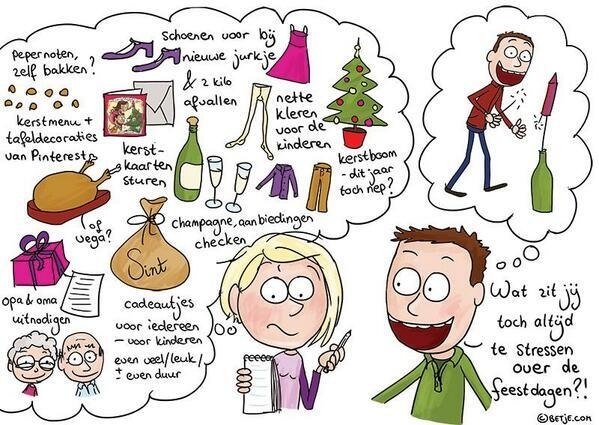 Pepernoten,
zelf bakken?
schoenen voor bij
nieuwe jurkje
& 2 kilo
afvallen
kerstmenu +
tafeldecoraties
van Pinterest
kerst-
kaarten
sturen
nette
kleren
voor de
kinderen
kerstboom
- dit jaar
toch nep?
of
vega?
champagne, aanbiedingen
checken
Sint
opa & oma
uitnodigen
cadeautjes
voor iedereen
- voor kinderen
even veel/leuk/
± even duur
Wat zit jij
toch altijd
te stressen
over de
feestdagen?!
©BETJE.COM